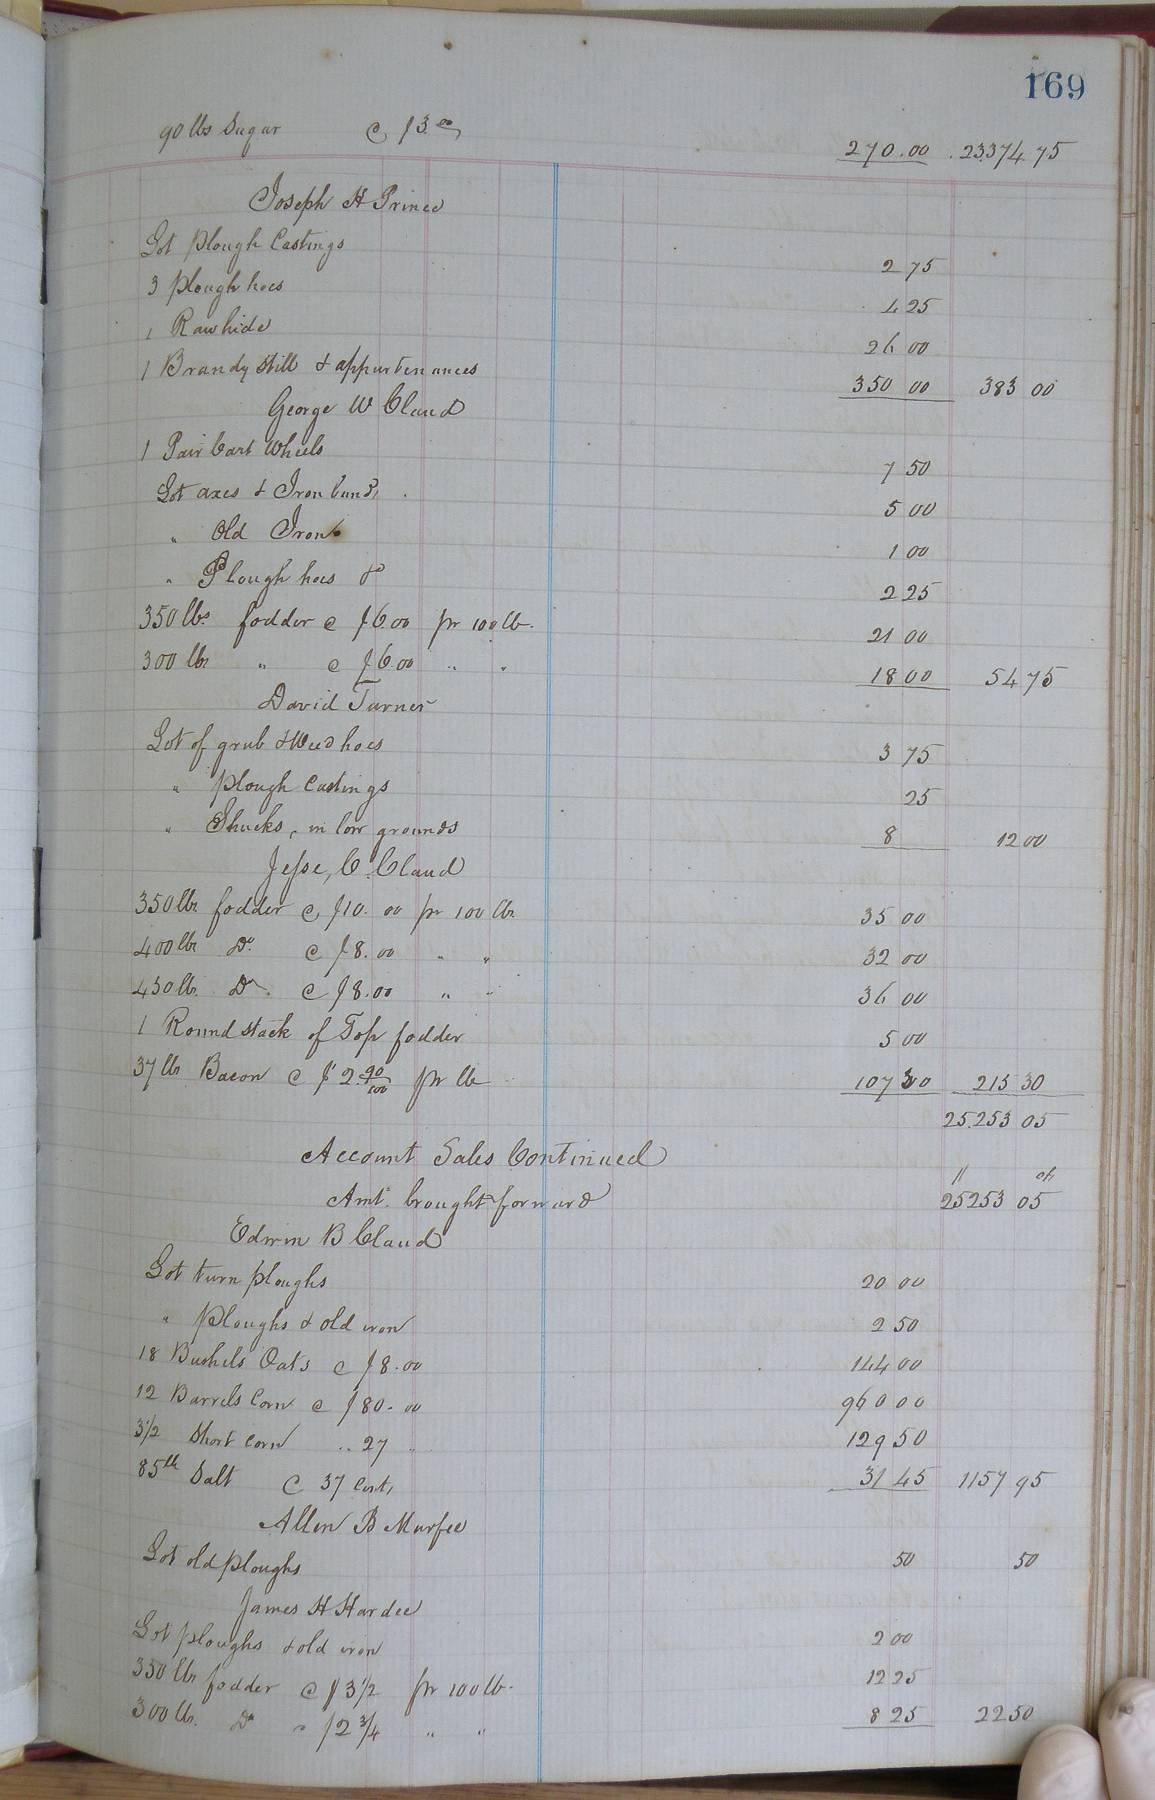 169
90 lbs Sugar @ $3.00 270.00 23374 75
Joseph H Prince
Lot Plough Castings 2 75
3 Plough hoes 4 25
1 Rawhide 26 00
1 Brandy Still & appurtenances 350 00 383 00
George W Claud
1 Pair Cart Wheels 7 50
Lot axes & Iron band 5 00
" Old Iron 1 00
" Plough hoes & 2 25
350 lbs fodder @ $6.00 pr 100 lb. 21 00
300 lbs " @ $6.00 " " 18 00 54 75
David Turner
Lot of grub & Weed hoes 3 75
" Plough Castings 25
" Shucks, in low grounds 8 12 00
Jesse, C. Claud
350 lbs fodder @ $10.00 pr 100 lbs 35 00
400 lbs Do. @ $8.00 " " 32 00
450 lbs. Do. @ $8.00 " " 36 00
1 Round stack of Top fodder 5 00
37 lbs Bacon @ $2 90/100 pr lb 107 30 215 30
25.253 05
Account Sales Continued
$ cts
Amt. brought forward 25253 05
Edwin B Claud
Lot turn ploughs 20 00
" Ploughs & old iron 2 50
18 Bushels Oats @ $8.00 144 00
12 Barrels Corn @ $80.00 960 00
3 1/2 Short Corn " 27 " 129 50
85 lb Salt @ 37 Cents, 31 45 1157 95
Allen B Murfee
Lot old ploughs 50 50
James H Hardee
Lot ploughs & old iron 2 00
350 lbs fodder @ $3 1/2 pr 100 lb. 12 25
300 lb. Do " $2 3/4 " " 8 25 22 50